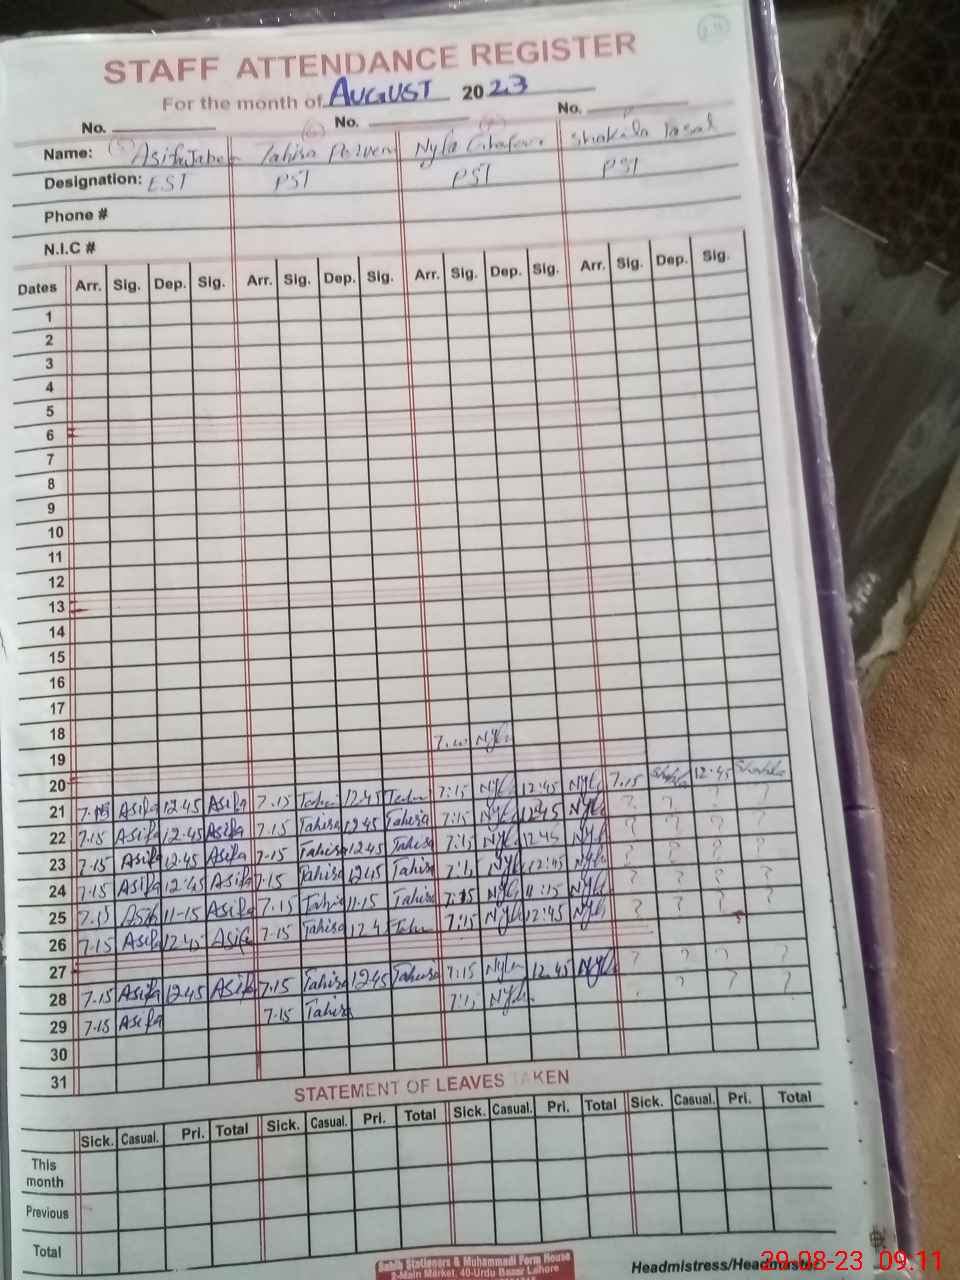 STAFF ATTENDANCE REGISTER
For the month of AUGUST 2023
No. No. No.
Name: (5) Asifa Jabe Tahira Perven Nyla Ghafoor Shakila
Designation: EST PST PST PST
Phone #
N.I.C #
Dates Arr. Sig. Dep. Sig. Arr. Sig. Dep. Sig. Arr. Sig. Dep. Sig. Arr. Sig. Dep. Sig.
1
2
3
4
5
6
7
8
9
10
11
12
13
14
15
16
17
18 Nyla
19
20
21 7.15 Asifa 12.45 Asifa 7.15 12.45 7:15 Nyla 12:45 Nyla 7.15 Shakila 12:45 Shakila
22 7.15 Asifa 12.45 Asifa 7.15 Tahira 12.45 Tahira 7:15 Nyla 12:45 Nyla ? ? ? ?
23 7.15 Asifa 12.45 Asifa 7.15 Tahira 12.45 Tahira 7:15 Nyla 12.45 Nyla ? ? ? ?
24 7.15 Asifa 12:45 Asifa 7.15 Tahira 12.45 Tahira 7:15 Nyla 12:45 Nyla ? ? ? ?
25 7.15 Asifa 11-15 Asifa 7.15 Tahira 11.15 Tahira 7:15 Nyla 11:15 Nyla ? ? ? ?
26 7.15 Asifa 12.45 Asifa 7.15 Tahira 12.4 7:15 Nyla 12:45 Nyla ?
27
28 7.15 Asifa 12.45 Asifa 7.15 Tahira 12.45 Tahira 7:15 Nyla 12.45 Nyla ? ? ? ?
29 7.15 Asifa 7.15 Tahira 7:15 Nyla ? ? ?
30
31
STATEMENT OF LEAVES TAKEN
Sick. Casual. Pri. Total Sick. Casual. Pri. Total Sick. Casual. Pri. Total Sick. Casual. Pri. Total
This month
Previous
Total
Sabih Stationers & Muhammadi Form House
2-Main Market, 40-Urdu Bazar Lahore
Headmistress/Headmaster
29-08-23 09:11